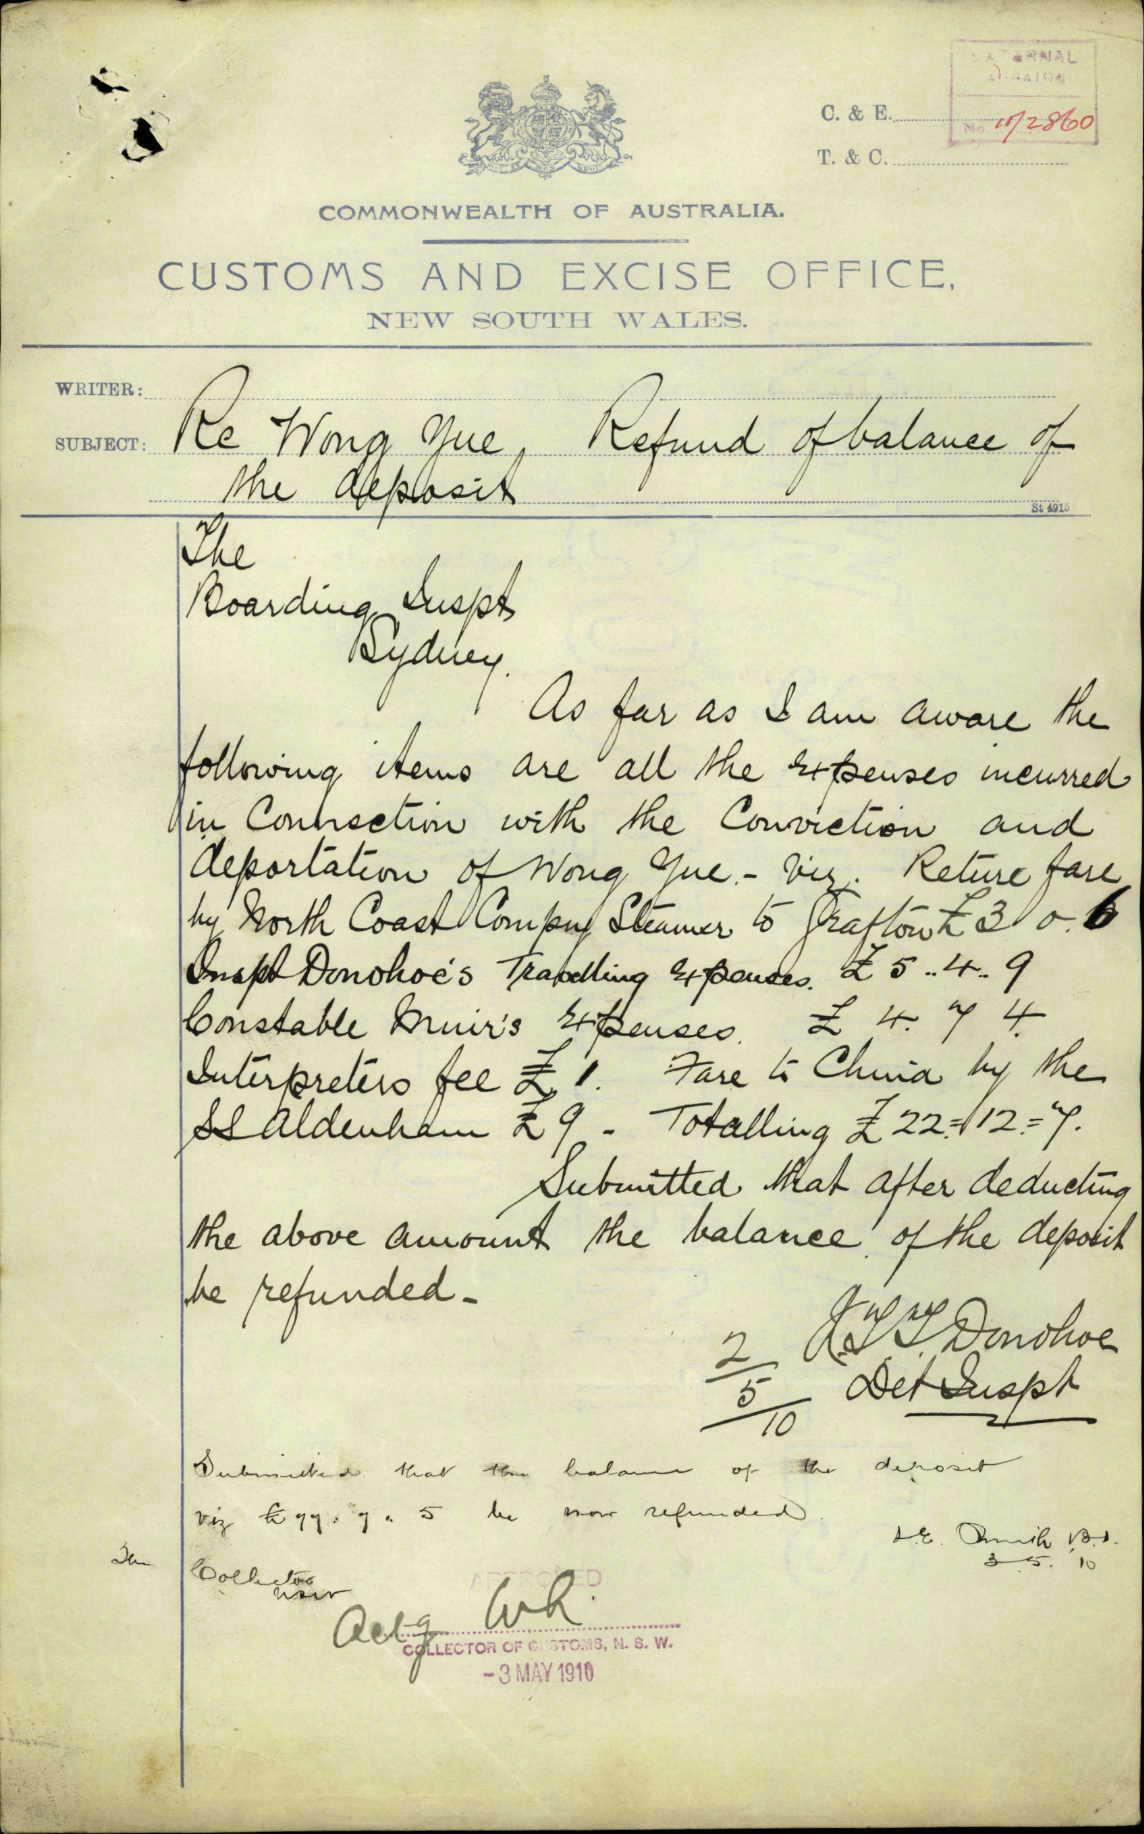 C. & E.
No 10/2860
T. & C.
COMMONWEALTH OF AUSTRALIA.
CUSTOMS AND EXCISE OFFICE,
NEW SOUTH WALES.
WRITER:
SUBJECT: Re Wong Yue, Refund of balance of
the deposit
St 4915
The
Boarding Inspt
Sydney.
As far as I am aware the
following items are all the expenses incurred
in Connection with the Conviction and
deportation of Wong Yue. - Viz. Return fare
by North Coast Compny Steamer to Grafton £3 0. 6
Inspt Donohoe's Travelling expenses. £5 .. 4 .. 9
Constable Muir's expenses. £ 4. 7 4
Interpreters fee £1. Fare to China by the
SS Aldenham £9 - Totalling £22 = 12 = 7.
Submitted that after deducting
the above amount the balance of the deposit
be refunded -
Donohoe
2/5/10 Det Inspt
Submitted that the balance of the deposit
viz £77. 7. 5 be now refunded.
The Collector
NSW
3 5. 10
APPROVED
Actg
COLLECTOR OF CUSTOMS, N. S. W.
- 3 MAY 1910